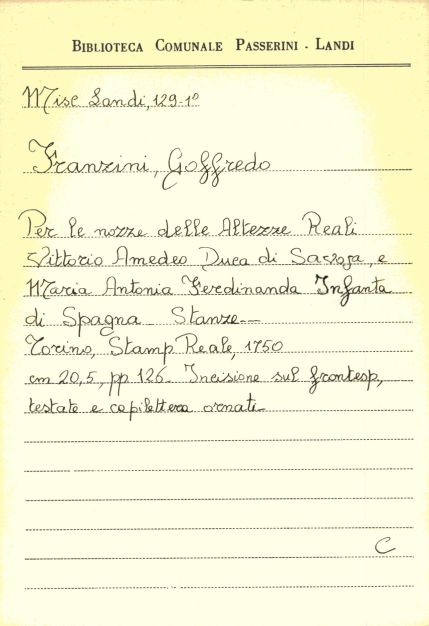 BIBLIOTECA COMUNALE PASSERINI - LANDI
Misc Landi, 129-1º
Franzini, Goffredo
Per le nozze delle Altezze Reali
Vittorio Amedeo Duca di Savoja, e
Maria Antonia Ferdinanda Infanta
di Spagna Stanze--
Torino, Stamp Reale, 1750
cm 20,5, pp 126. Incisione sul frontesp,
testate e capilettera ornati-
C